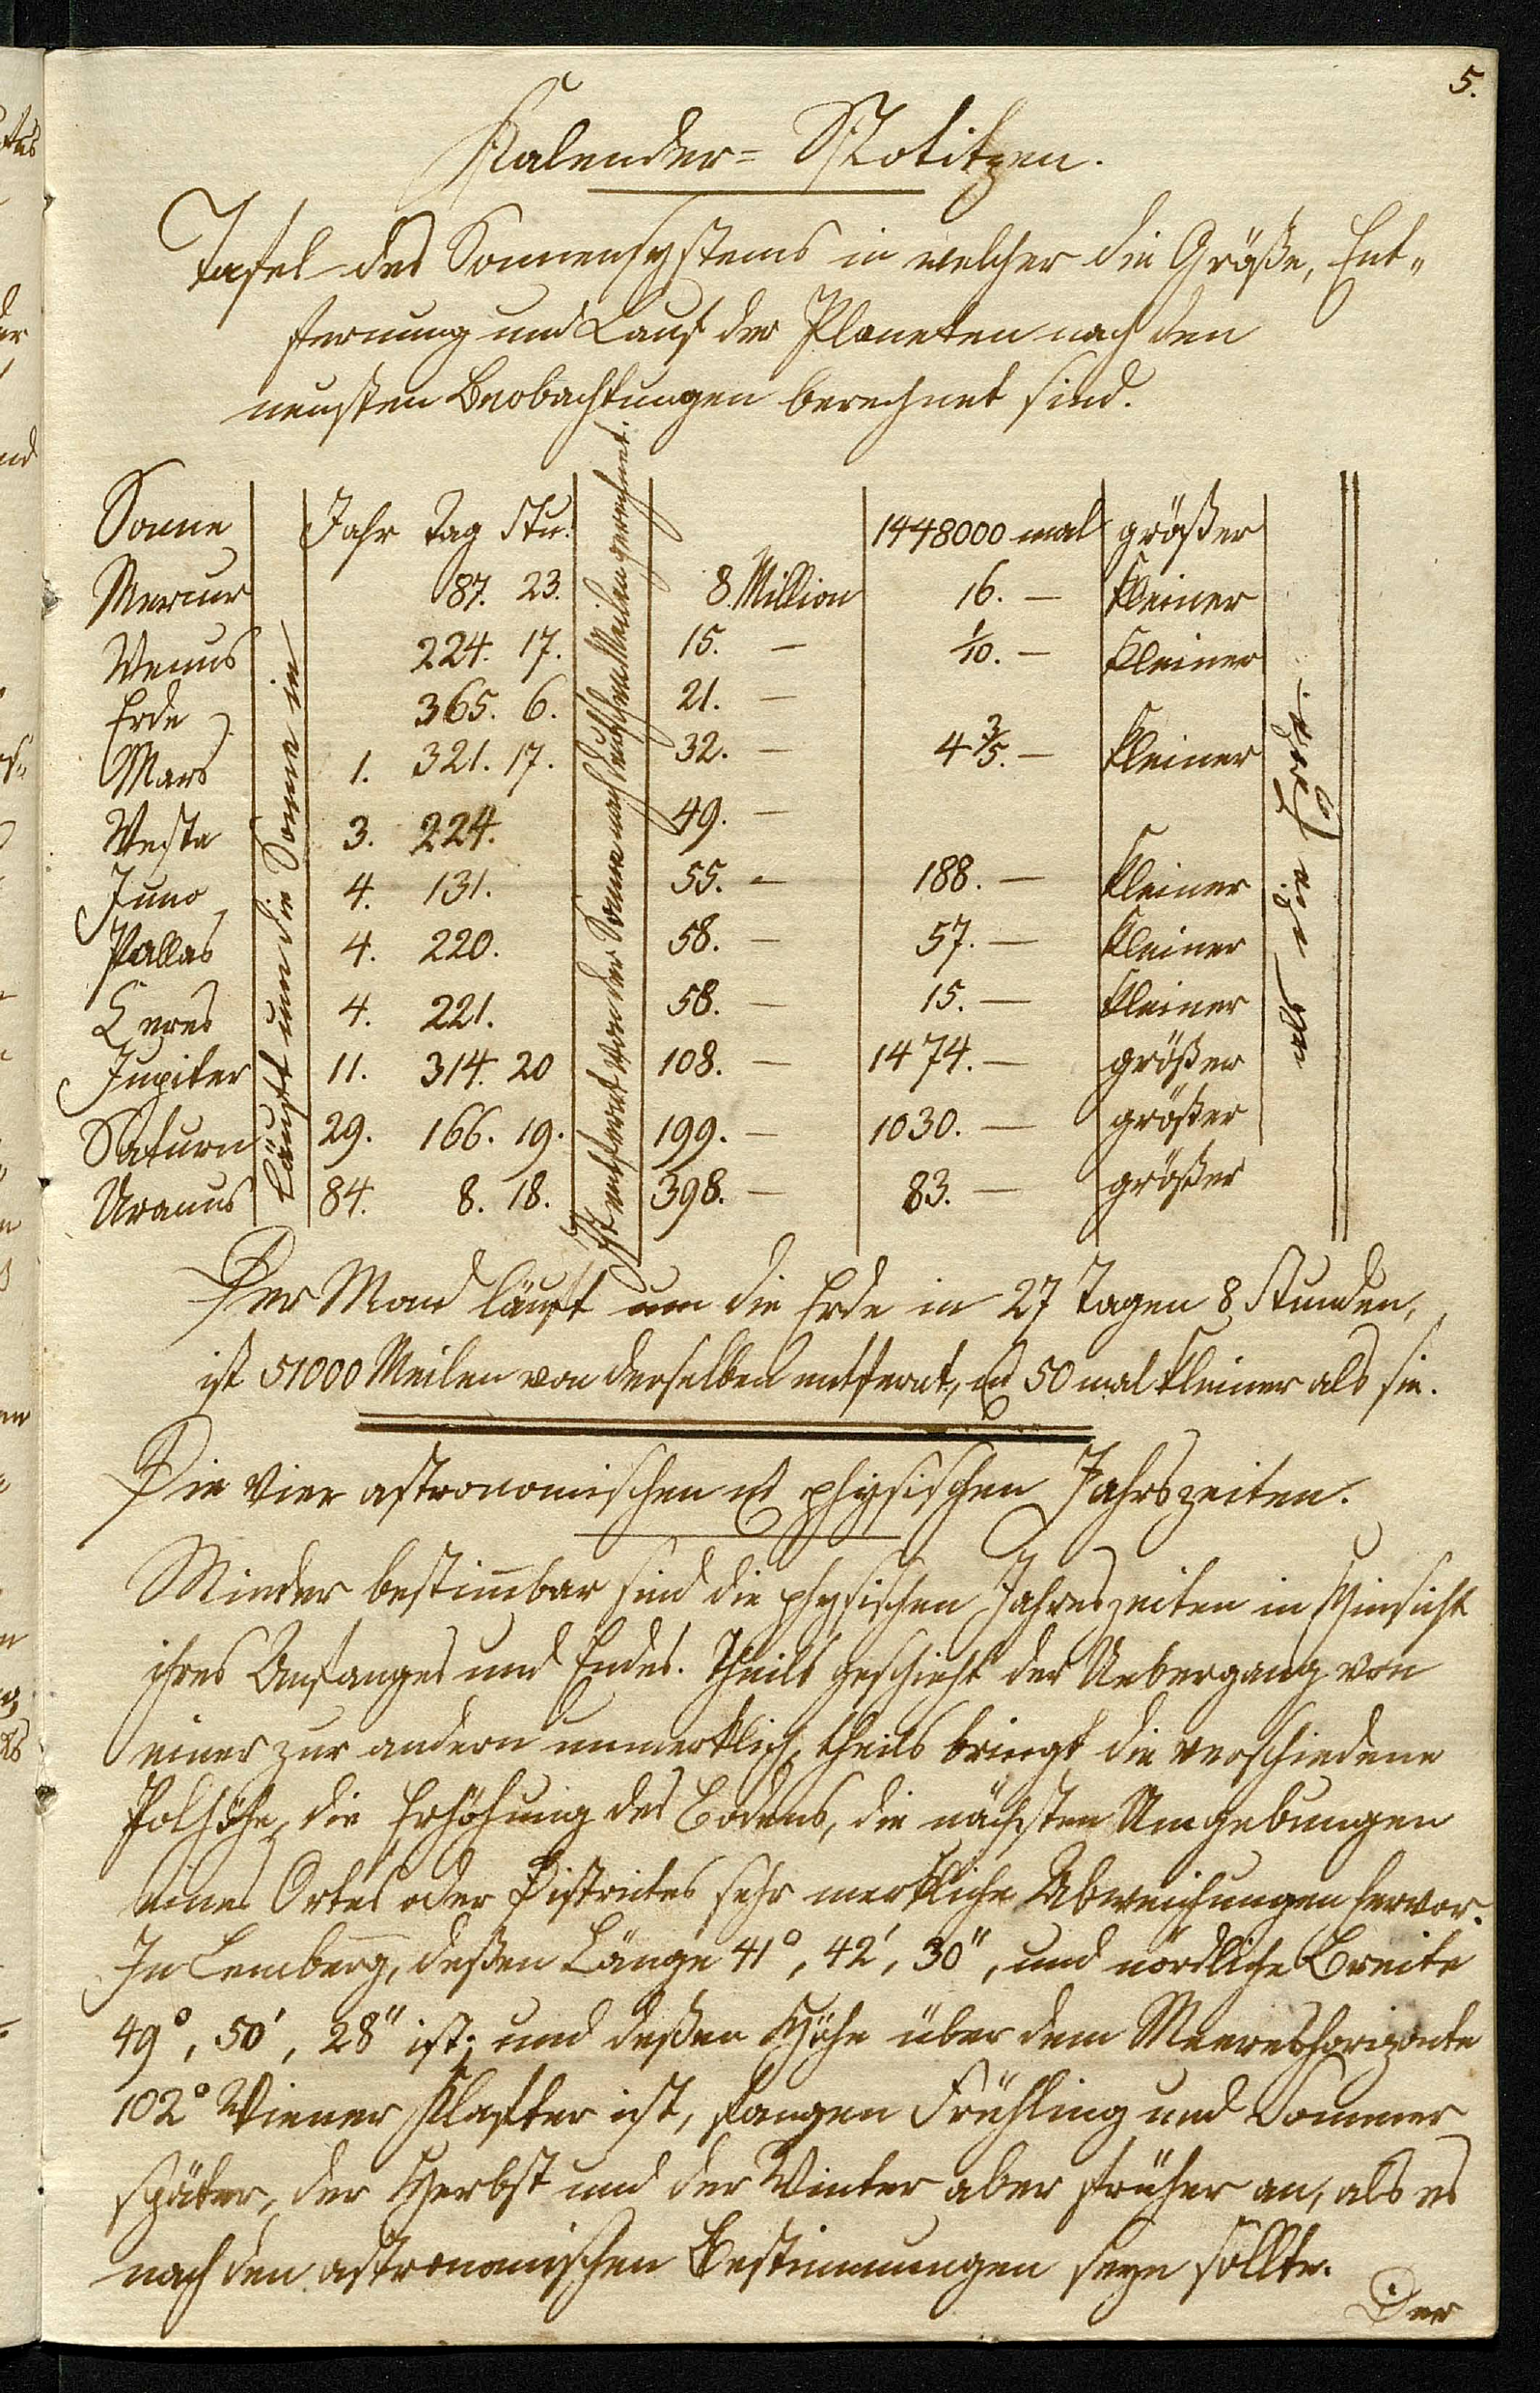 5.
Kalender= Notitzen.
Tafel des Sonnensystems in welcher die Größe, Ent„
fernung und Lauf der Planeten nach den
neusten Beobachtungen berechnet sind.
Sonne Jahr Tag Stu. 1448000 mal größer
Mercur 87. 23. 8. Million 16. — kleiner
Venus 224. 17. 15. — 1/10. — kleiner
Erde 365. 6. 21. —
Mars 1. 321. 17. 32. — 4 3/5. — kleiner
Vesta 3. 224. 49. —
Juno 4. 131. 55. — 188. — kleiner
Pallas 4. 220. 58. — 57. — kleiner
Ceres 4. 221. 58. — 15. — kleiner
Jupiter 11. 314. 20 108. — 1474. — größer
Saturn 29. 166. 19. 199. — 1030. — größer
Uranus 84. 8. 18. 398. — 83. — größer
Läuft um die Sonne in
Ist entfernt von der Sonne nach deutschen Meilen gerechnet.
als die Erde.
Der Mond läuft um die Erde in 27 Tagen 8 Stunden,
ist 51000 Meilen von derselben entfernt, u 50 mal kleiner als sie.
Die vier astronomischen u physischen Jahrszeiten.
Minder bestim̅bar sind die physischen Jahreszeiten in Hinsicht
ihres Anfanges und Endes. Theils geschieht der Uebergang von
einer zur andern unmerklich, theils bringt die verschiedene
Polhöhe, die Erhöhung des Bodens, die nächsten Umgebungen
eines Ortes oder Districtes sehr merkliche Abweichungen hervor.
In Lemberg, deßen Länge 41°, 42', 30", und nördliche Breite
49°, 50', 28" ist; und deßen Höhe über dem Meereshorizonte
102° Wiener Klafter ist, fangen Frühling und Sommer
später, der Herbst und der Winter aber früher an, als es
nach den astronomischen Bestimmungen seyn sollte.
Der